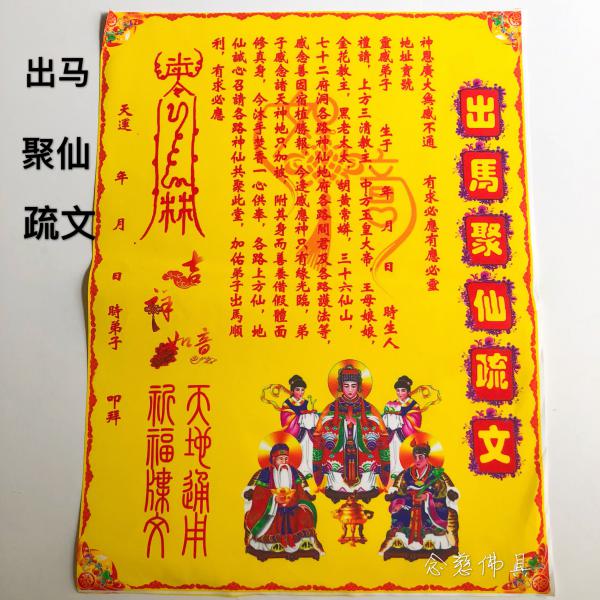 出马
聚仙
疏文
出馬聚仙疏文
神恩廣大無感不通 有求必應有應必靈
地址寶號
靈感弟子 生于 年 月 日 時生人
禮請，上方三清教主，中方玉皇大帝，王母娘娘，
金花教主，黑老太太，胡黃常蟒，三十六仙山，
七十二府洞各路神仙地府各路閻君及各路護法等，
感念善因宿植勝報，今逢感應神只有緣光臨，弟
子感念諸天神地只加被，附其身而善養借假體面
修真身，今沐手焚香一心供奉，各路上方仙，地
仙誠心召請各路神仙共聚此堂，加佑弟子出馬順
利，有求必應
天運 年 月 日 時弟子 叩拜
吉祥如意
天地通用
祈福牒文
念慈佛具